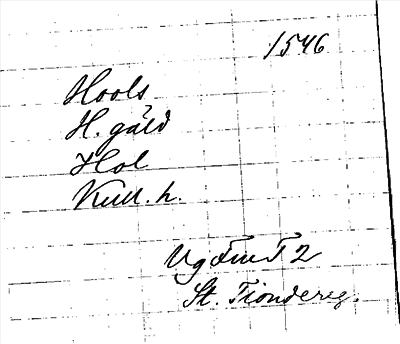 1546
Hools
H. gäld
Hol
Kull. h.
Vg FmT 2
St. Tiondereg.